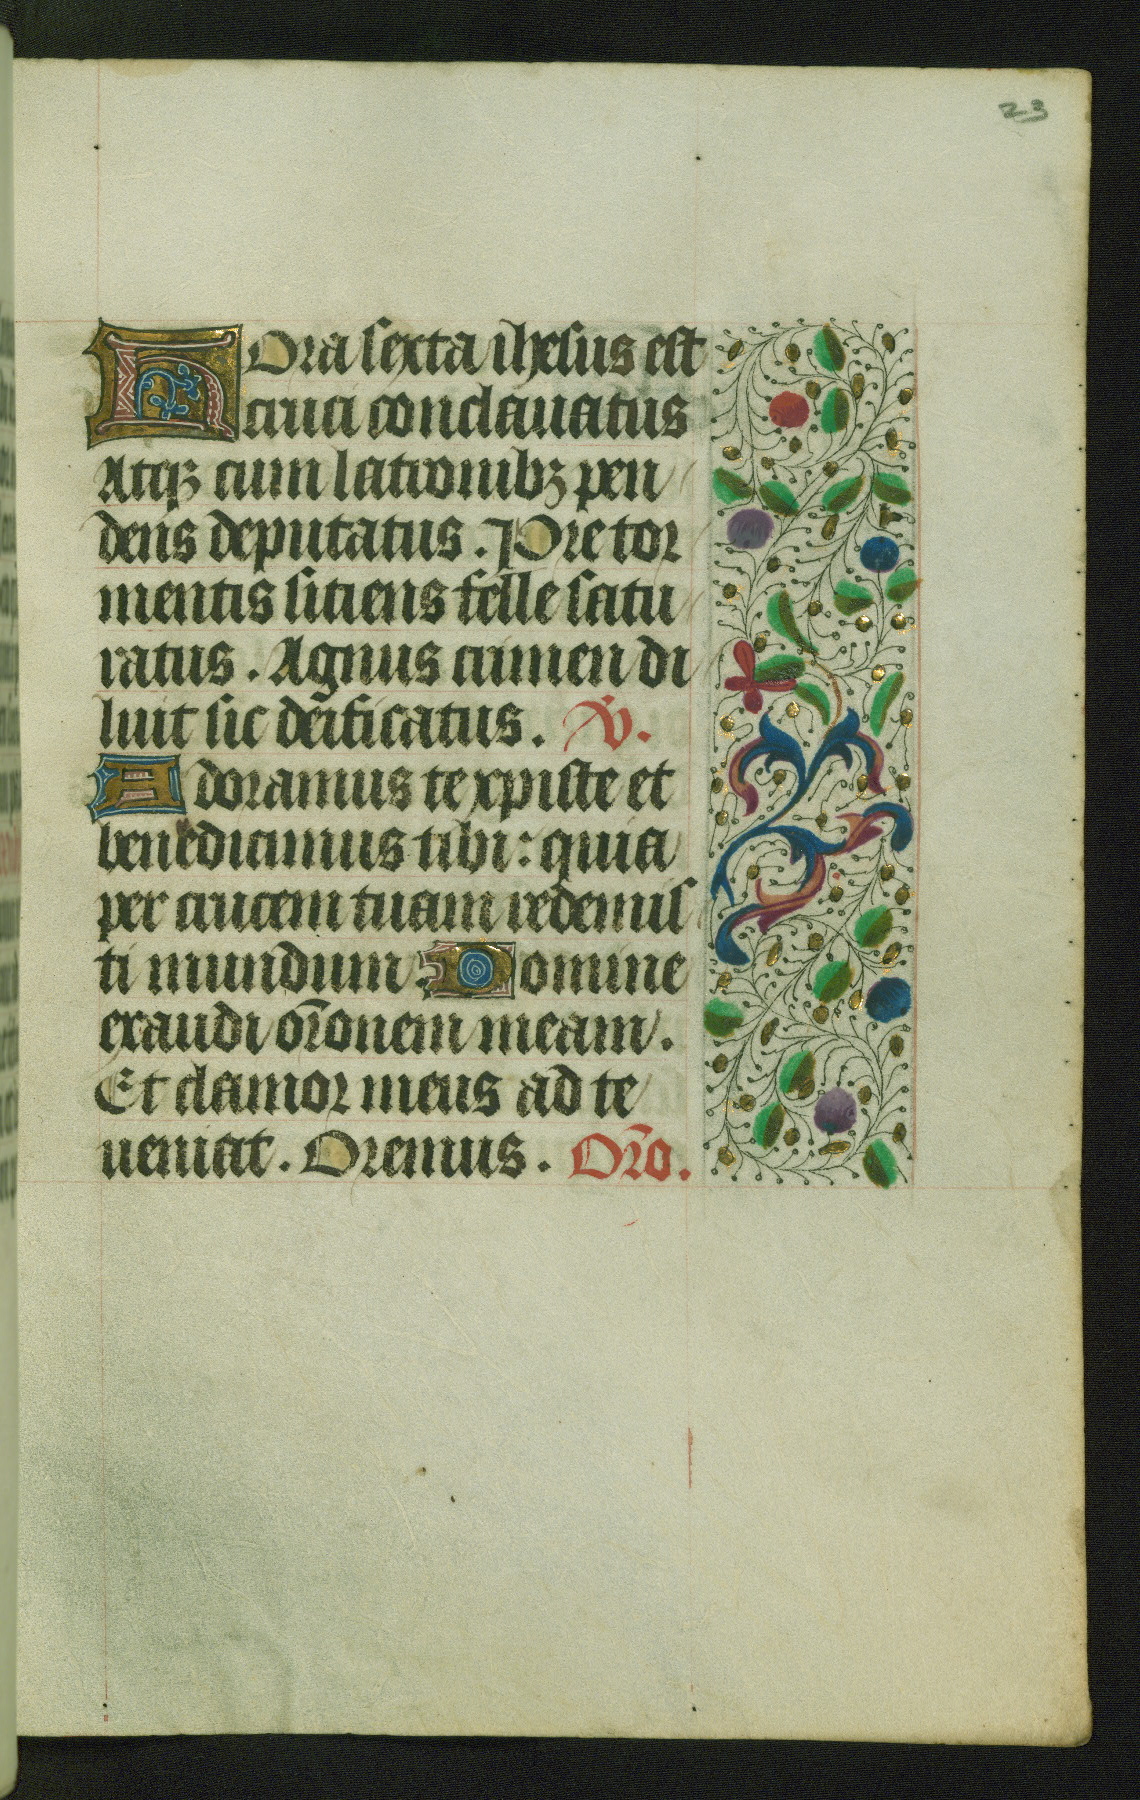 23
Hora sexta ihesus est
cruci conclauatus
Atqꝫ cum latronibꝫ pen
dens deputatus. Pre tor
mentis sitiens felle satu
ratus. Agnus crimen di
luit sic dēificatus. V.
Adoramus te xpiste et
benedicimus tibi: quia
per crucem tuam redemis
ti mundum. Domine
exaudi orōnem meam.
Et clamor meus ad te
ueniat. Oremus. Orō.